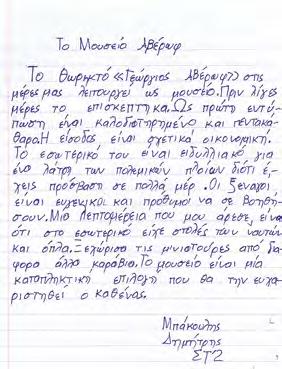 Το Μουσείο Αβέρωφ
Το Θωρηκτό «Γεώργιος Αβέρωφ» στις
μέρες μας λειτουργεί ως μουσείο. Πριν λίγες
μέρες το επισκέπτηκα. Ως πρώτη εντύ-
πωση είναι καλοδιατηρημένο και πεντακά-
θαρο. Η είσοδος είναι σχετικά οικονομική.
Το εσωτερικό του είναι ειδυλλιακό για
ένα λάτρη των πολεμικών πλοίων διότι έ-
χεις πρόσβαση σε πολλά μέρ. Οι ξεναγοί
είναι ευγενικοί και πρόθυμοι να σε βοηθή-
σουν. Μια λεπτομέρεια που μου άρεσε, είναι
ότι στο εσωτερικό είχε στολές των ναυτών
και όπλα. Ξεχώρισα τις μινιατούρες από διά-
φορα άλλα καράβια. Το μουσείο είναι μία
καταπληκτική επιλογή που θα την ευχα-
ριστηθεί ο καθένας.
Μπάκουλης
Δημήτρης
ΣΤ2